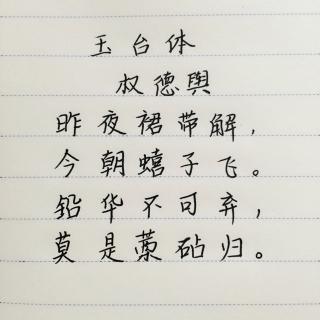 玉台体
权德舆
昨夜裙带解，
今朝蟢子飞。
铅华不可弃，
莫是藁砧归。